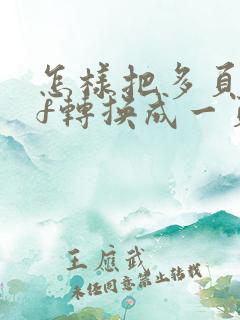 怎樣把多頁
f轉換成一頁
王應武
未经同意禁止转载